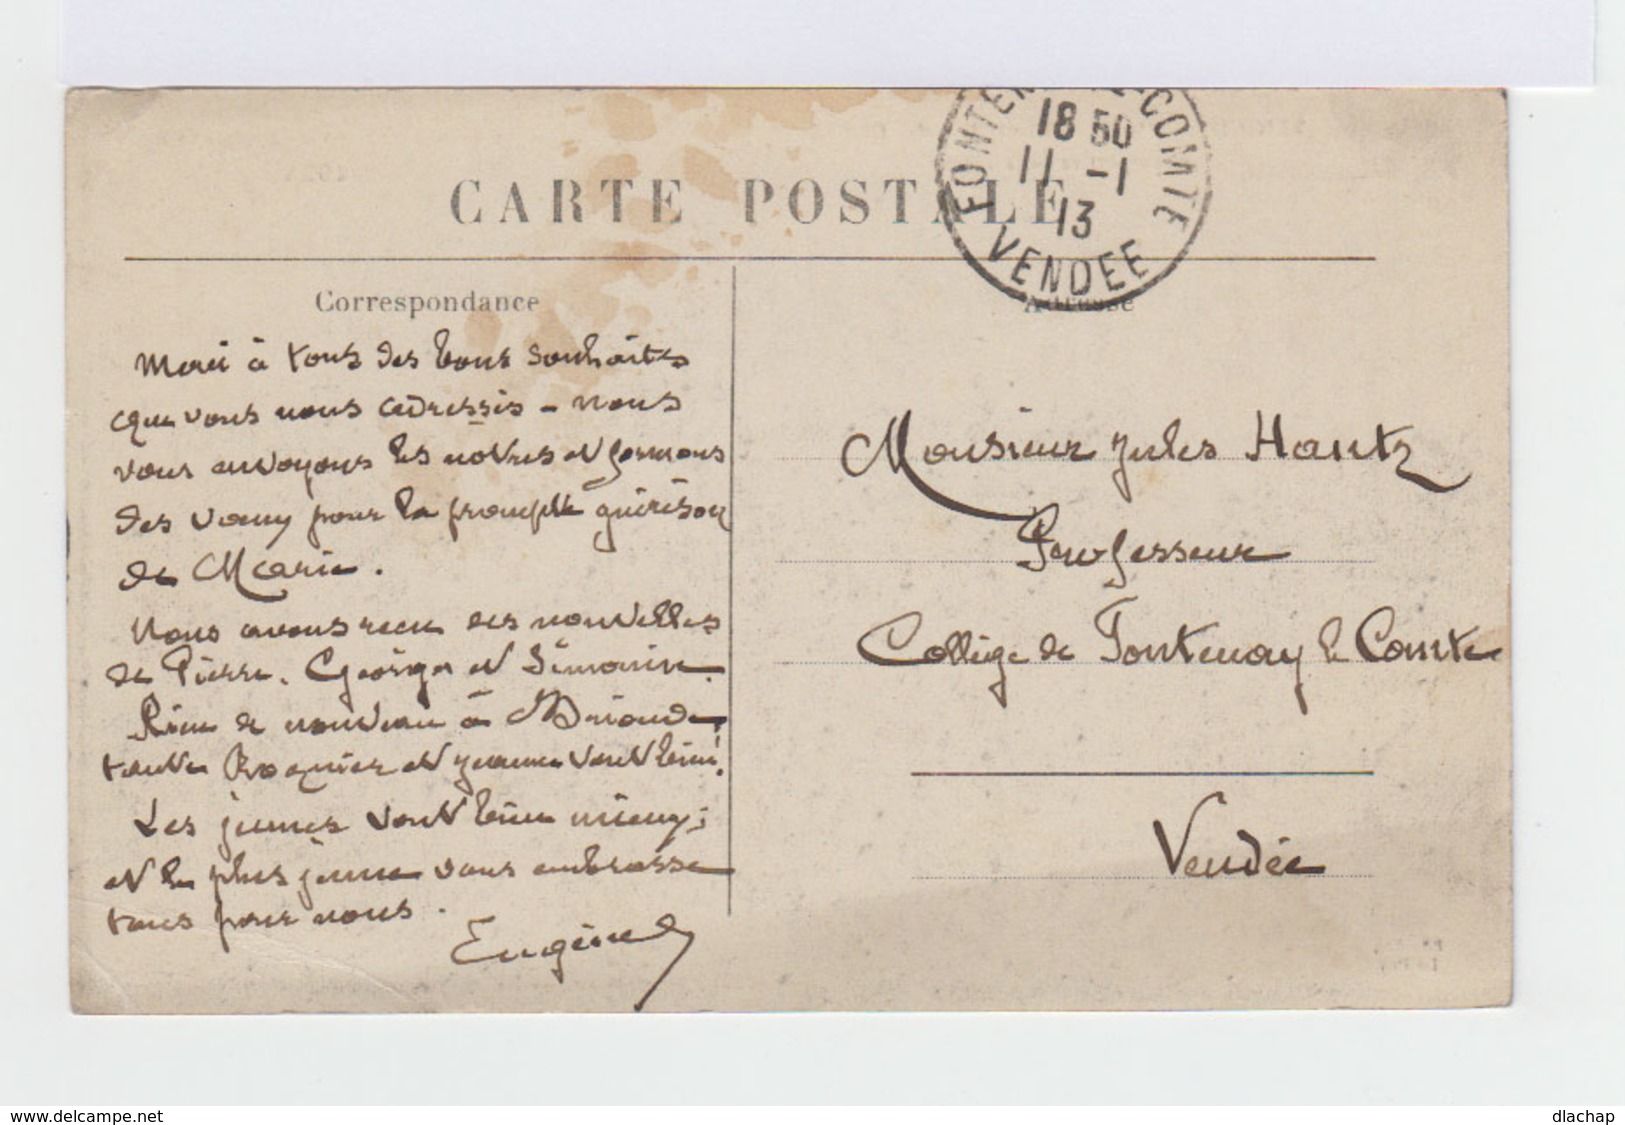 FONTENAY-LE-COMTE
18 50
11 -1
13
VENDEE
CARTE POSTALE
Correspondance
Adresse
Merci à tous des bons souhaits
que vous nous adressés - nous
vous envoyons les nôtres et formons
des vœux pour la prompte guérison
de Marie.
Nous avons reçu des nouvelles
de Pierre. George et Simonin.
Rien de nouveau à Brioude,
tante Rognier et Jeanne vont bien!
Les jeunes vont bien mieux;
et la plus jeune vous embrasse
tous pour nous.
Eugène
Monsieur Jules Hantz
Professeur
Collège de Fontenay le Comte
Vendée
www.delcampe.net
dlachap